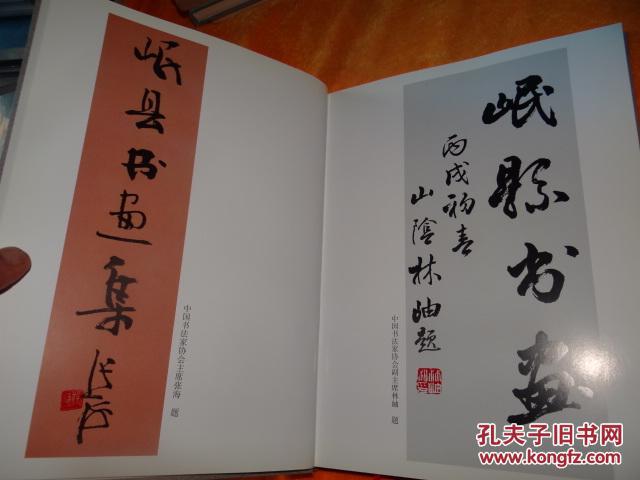 岷县书画集
张海
中国书法家协会主席张海 题
岷縣书畫
丙戌初春
山陰林岫题
中国书法家协会副主席林岫 题
孔夫子旧书网
KONGFZ.COM